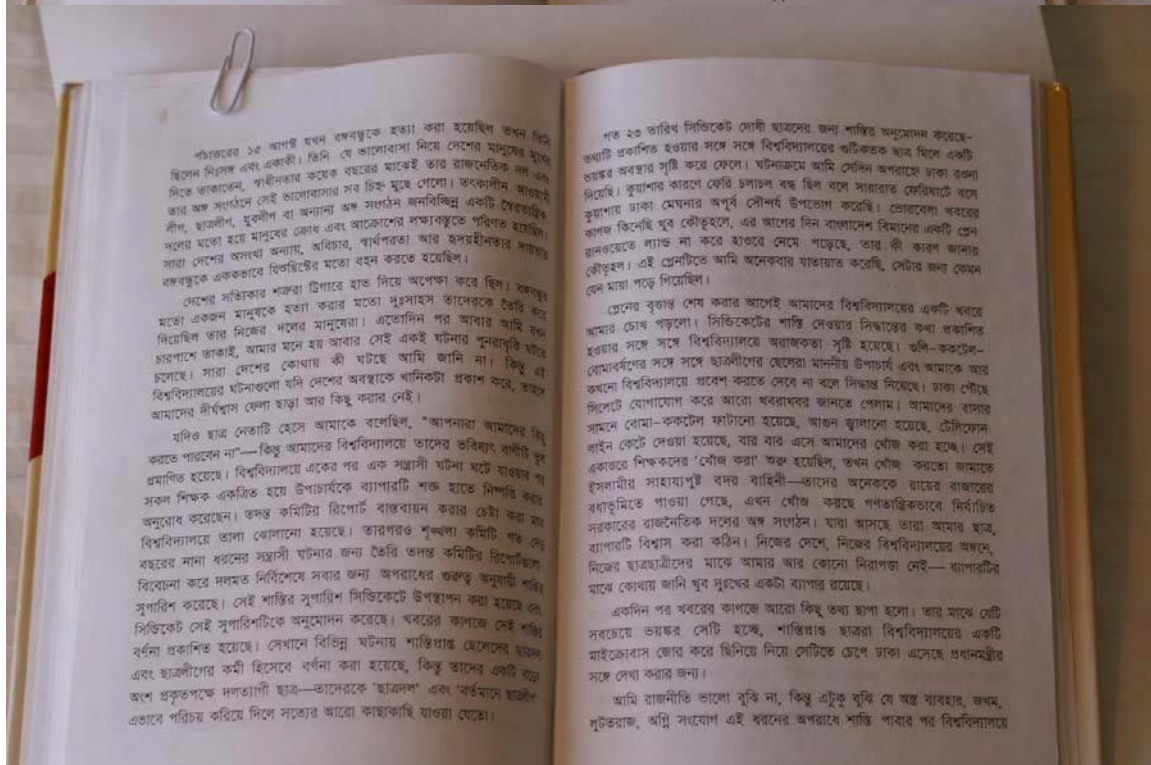 পঁচাত্তরের ১৫ আগস্ট যখন বঙ্গবন্ধুকে হত্যা করা হয়েছিল তখন তিনি
ছিলেন নিঃসঙ্গ এবং একাকী। তিনি যে ভালোবাসা নিয়ে দেশের মানুষের মুখের
দিতে তাকাতেন, স্বাধীনতার কয়েক বছরের মাঝেই তার রাজনৈতিক দল এবং
তার অঙ্গ সংগঠনে সেই ভালোবাসার সব চিহ্ন মুছে গেলো। তৎকালীন আওয়ামী
লীগ, ছাত্রলীগ, যুবলীগ বা অন্যান্য অঙ্গ সংগঠন জনবিচ্ছিন্ন একটি স্বৈরতান্ত্রিক
দলের মতো হয়ে মানুষের ক্রোধ এবং আক্রোশের লক্ষ্যবস্তুতে পরিণত হয়েছিল।
সারা দেশের অসংখ্য অন্যায়, অবিচার, স্বার্থপরতা আর হৃদয়হীনতার দায়ভার
বঙ্গবন্ধুকে এককভাবে যিশুখ্রিস্টের মতো বহন করতে হয়েছিল।
দেশের সত্যিকার শত্রুরা ট্রিগারে হাত দিয়ে অপেক্ষা করে ছিল। বঙ্গবন্ধুর
মতো একজন মানুষকে হত্যা করার মতো দুঃসাহস তাদেরকে তৈরি করে
দিয়েছিল তার নিজের দলের মানুষেরা। এতোদিন পর আবার আমি যখন
চারপাশে তাকাই, আমার মনে হয় আবার সেই একই ঘটনার পুনরাবৃত্তি ঘটতে
চলেছে। সারা দেশের কোথায় কী ঘটছে আমি জানি না। কিন্তু এই
বিশ্ববিদ্যালয়ের ঘটনাগুলো যদি দেশের অবস্থাকে খানিকটা প্রকাশ করে, তাহলে
আমাদের দীর্ঘশ্বাস ফেলা ছাড়া আর কিছু করার নেই।
যদিও ছাত্র নেতাটি হেসে আমাকে বলেছিল, "আপনারা আমাদের কিছু
করতে পারবেন না"— কিন্তু আমাদের বিশ্ববিদ্যালয়ে তাদের ভবিষ্যৎ বাণীটি ভুল
প্রমাণিত হয়েছে। বিশ্ববিদ্যালয়ে একের পর এক সন্ত্রাসী ঘটনা ঘটে যাওয়ার পর
সকল শিক্ষক একত্রিত হয়ে উপাচার্যকে ব্যাপারটি শক্ত হাতে নিষ্পত্তি করার
অনুরোধ করেছেন। তদন্ত কমিটির রিপোর্ট বাস্তবায়ন করার চেষ্টা করা মাত্র
বিশ্ববিদ্যালয়ে তালা ঝোলানো হয়েছে। তারপরও শৃঙ্খলা কমিটি গত দেড়
বছরের নানা ধরনের সন্ত্রাসী ঘটনার জন্য তৈরি তদন্ত কমিটির রিপোর্টগুলো
বিবেচনা করে দলমত নির্বিশেষে সবার জন্য অপরাধের গুরুত্ব অনুযায়ী শাস্তির
সুপারিশ করেছে। সেই শাস্তির সুপারিশ সিন্ডিকেটে উপস্থাপন করা হয়েছে এবং
সিন্ডিকেট সেই সুপারিশটিকে অনুমোদন করেছে। খবরের কাগজে সেই শাস্তির
বর্ণনা প্রকাশিত হয়েছে। সেখানে বিভিন্ন ঘটনায় শাস্তিপ্রাপ্ত ছেলেদের ছাত্রদল
এবং ছাত্রলীগের কর্মী হিসেবে বর্ণনা করা হয়েছে, কিন্তু তাদের একটি বড়ো
অংশ প্রকৃতপক্ষে দলত্যাগী ছাত্র—তাদেরকে 'ছাত্রদল' এবং 'বর্তমানে ছাত্রলীগ'
এভাবে পরিচয় করিয়ে দিলে সত্যের আরো কাছাকাছি যাওয়া যেতো।
গত ২৩ তারিখ সিন্ডিকেট দোষী ছাত্রদের জন্য শাস্তির অনুমোদন করেছে-
তথ্যটি প্রকাশিত হওয়ার সঙ্গে সঙ্গে বিশ্ববিদ্যালয়ের গুটিকতক ছাত্র মিলে একটি
ভয়ঙ্কর অবস্থার সৃষ্টি করে ফেলে। ঘটনাক্রমে আমি সেদিন অপরাহ্নে ঢাকা রওনা
দিয়েছি। কুয়াশার কারণে ফেরি চলাচল বন্ধ ছিল বলে সারারাত ফেরিঘাটে বসে
কুয়াশায় ঢাকা মেঘনার অপূর্ব সৌন্দর্য উপভোগ করেছি। ভোরবেলা খবরের
কাগজ কিনেছি খুব কৌতূহলে, এর আগের দিন বাংলাদেশ বিমানের একটি প্লেন
রানওয়েতে ল্যান্ড না করে হাওরে নেমে পড়েছে, তার কী কারণ জানার
কৌতূহল। এই প্লেনটিতে আমি অনেকবার যাতায়াত করেছি, সেটার জন্য কেমন
যেন মায়া পড়ে গিয়েছিল।
প্লেনের বৃত্তান্ত শেষ করার আগেই আমাদের বিশ্ববিদ্যালয়ের একটি খবরে
আমার চোখ পড়লো। সিন্ডিকেটের শাস্তি দেওয়ার সিদ্ধান্তের কথা প্রকাশিত
হওয়ার সঙ্গে সঙ্গে বিশ্ববিদ্যালয়ে অরাজকতা সৃষ্টি হয়েছে। গুলি-ককটেল-
বোমাবর্ষণের সঙ্গে সঙ্গে ছাত্রলীগের ছেলেরা মাননীয় উপাচার্য এবং আমাকে আর
কখনো বিশ্ববিদ্যালয়ে প্রবেশ করতে দেবে না বলে সিদ্ধান্ত নিয়েছে। ঢাকা পৌঁছে
সিলেটে যোগাযোগ করে আরো খবরাখবর জানতে পেলাম। আমাদের বাসার
সামনে বোমা-ককটেল ফাটানো হয়েছে, আগুন জ্বালানো হয়েছে, টেলিফোন
লাইন কেটে দেওয়া হয়েছে, বার বার এসে আমাদের খোঁজ করা হচ্ছে। সেই
একাত্তরে শিক্ষকদের 'খোঁজ করা' শুরু হয়েছিল, তখন খোঁজ করতো জামাতে
ইসলামীর সাহায্যপুষ্ট বদর বাহিনী—তাদের অনেককে রায়ের বাজারের
বধ্যভূমিতে পাওয়া গেছে, এখন খোঁজ করছে গণতান্ত্রিকভাবে নির্বাচিত
সরকারের রাজনৈতিক দলের অঙ্গ সংগঠন। যারা আসছে তারা আমার ছাত্র,
ব্যাপারটি বিশ্বাস করা কঠিন। নিজের দেশে, নিজের বিশ্ববিদ্যালয়ের অঙ্গনে,
নিজের ছাত্রছাত্রীদের মাঝে আমার আর কোনো নিরাপত্তা নেই— ব্যাপারটির
মাঝে কোথায় জানি খুব দুঃখের একটা ব্যাপার রয়েছে।
একদিন পর খবরের কাগজে আরো কিছু তথ্য ছাপা হলো। তার মাঝে যেটি
সবচেয়ে ভয়ঙ্কর সেটি হচ্ছে, শাস্তিপ্রাপ্ত ছাত্ররা বিশ্ববিদ্যালয়ের একটি
মাইক্রোবাস জোর করে ছিনিয়ে নিয়ে সেটিতে চেপে ঢাকা এসেছে প্রধানমন্ত্রীর
সঙ্গে দেখা করার জন্য।
আমি রাজনীতি ভালো বুঝি না, কিন্তু এটুকু বুঝি যে অস্ত্র ব্যবহার, জখম,
লুটতরাজ, অগ্নি সংযোগ এই ধরনের অপরাধে শাস্তি পাবার পর বিশ্ববিদ্যালয়ে